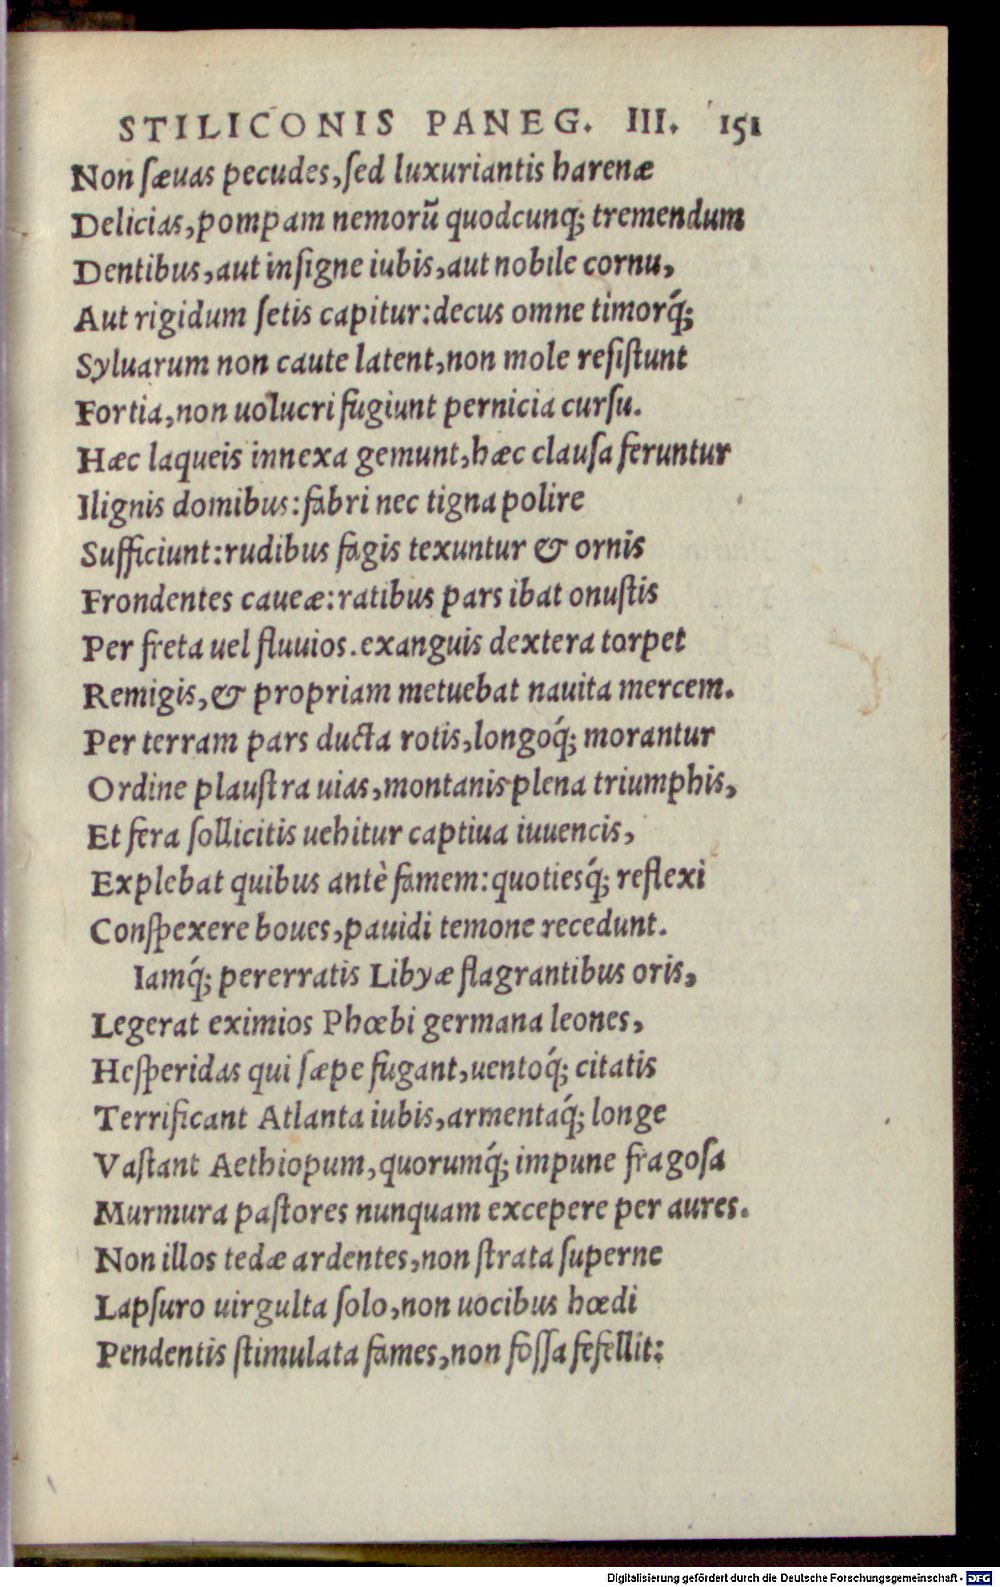 STILICONIS PANEG. III. 151
Non sæuas pecudes, sed luxuriantis harenæ
Delicias, pompam nemorũ quodcunq; tremendum
Dentibus, aut insigne iubis, aut nobile cornu,
Aut rigidum setis capitur: decus omne timorq́;
Syluarum non caute latent, non mole resistunt
Fortia, non uolucri fugiunt pernicia cursu.
Hæc laqueis innexa gemunt, hæc clausa feruntur
Ilignis domibus: fabri nec tigna polire
Sufficiunt: rudibus fagis texuntur & ornis
Frondentes caueæ: ratibus pars ibat onustis
Per freta uel fluuios. exanguis dextera torpet
Remigis, & propriam metuebat nauita mercem.
Per terram pars ducta rotis, longoq́; morantur
Ordine plaustra uias, montanis plena triumphis,
Et fera sollicitis uehitur captiua iuuencis,
Explebat quibus antè famem: quotiesq́; reflexi
Conspexere boues, pauidi temone recedunt.
Iamq́; pererratis Libyæ flagrantibus oris,
Legerat eximios Phœbi germana leones,
Hesperidas qui sæpe fugant, uentoq́; citatis
Terrificant Atlanta iubis, armentaq́; longe
Vastant Aethiopum, quorumq́; impune fragosa
Murmura pastores nunquam excepere per aures.
Non illos tedæ ardentes, non strata superne
Lapsuro uirgulta solo, non uocibus hœdi
Pendentis stimulata fames, non fossa fefellit:
Digitalisierung gefördert durch die Deutsche Forschungsgemeinschaft - DFG